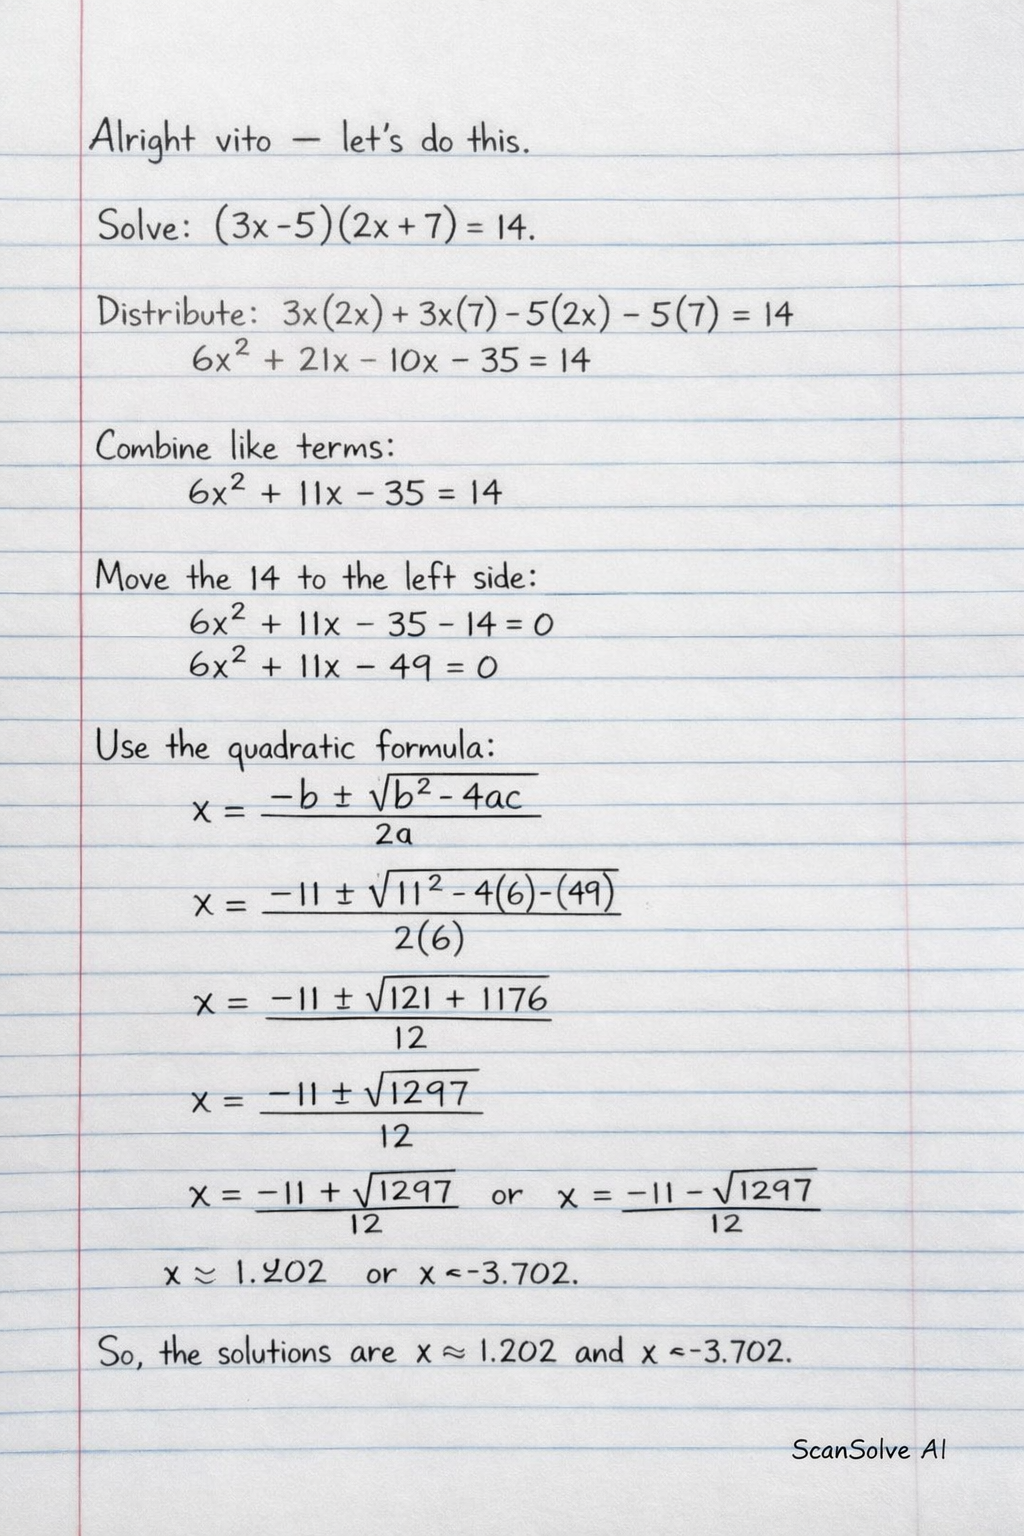 Alright vito — let's do this.
Solve: (3x-5)(2x+7) = 14.
Distribute: 3x(2x) + 3x(7) - 5(2x) - 5(7) = 14
6x² + 21x - 10x - 35 = 14
Combine like terms:
6x² + 11x - 35 = 14
Move the 14 to the left side:
6x² + 11x - 35 - 14 = 0
6x² + 11x - 49 = 0
Use the quadratic formula:
x = (-b ± √(b² - 4ac)) / 2a
x = (-11 ± √(11² - 4(6)-(49))) / 2(6)
x = (-11 ± √(121 + 1176)) / 12
x = (-11 ± √1297) / 12
x = (-11 + √1297) / 12 or x = (-11 - √1297) / 12
x ≈ 1.202 or x <-3.702.
So, the solutions are x ≈ 1.202 and x <-3.702.
ScanSolve AI